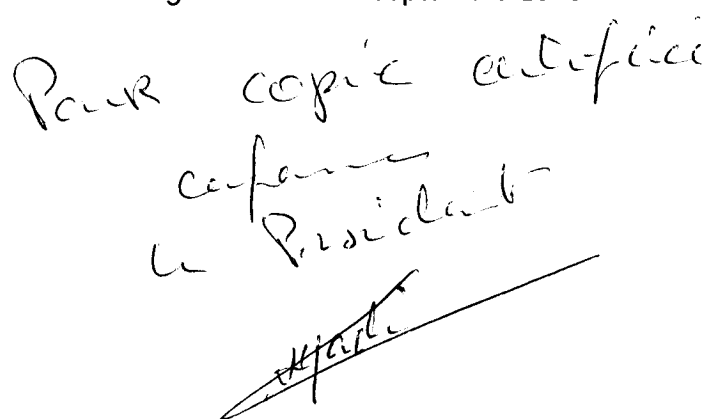 Pour copie certifiée
conforme
Le Président